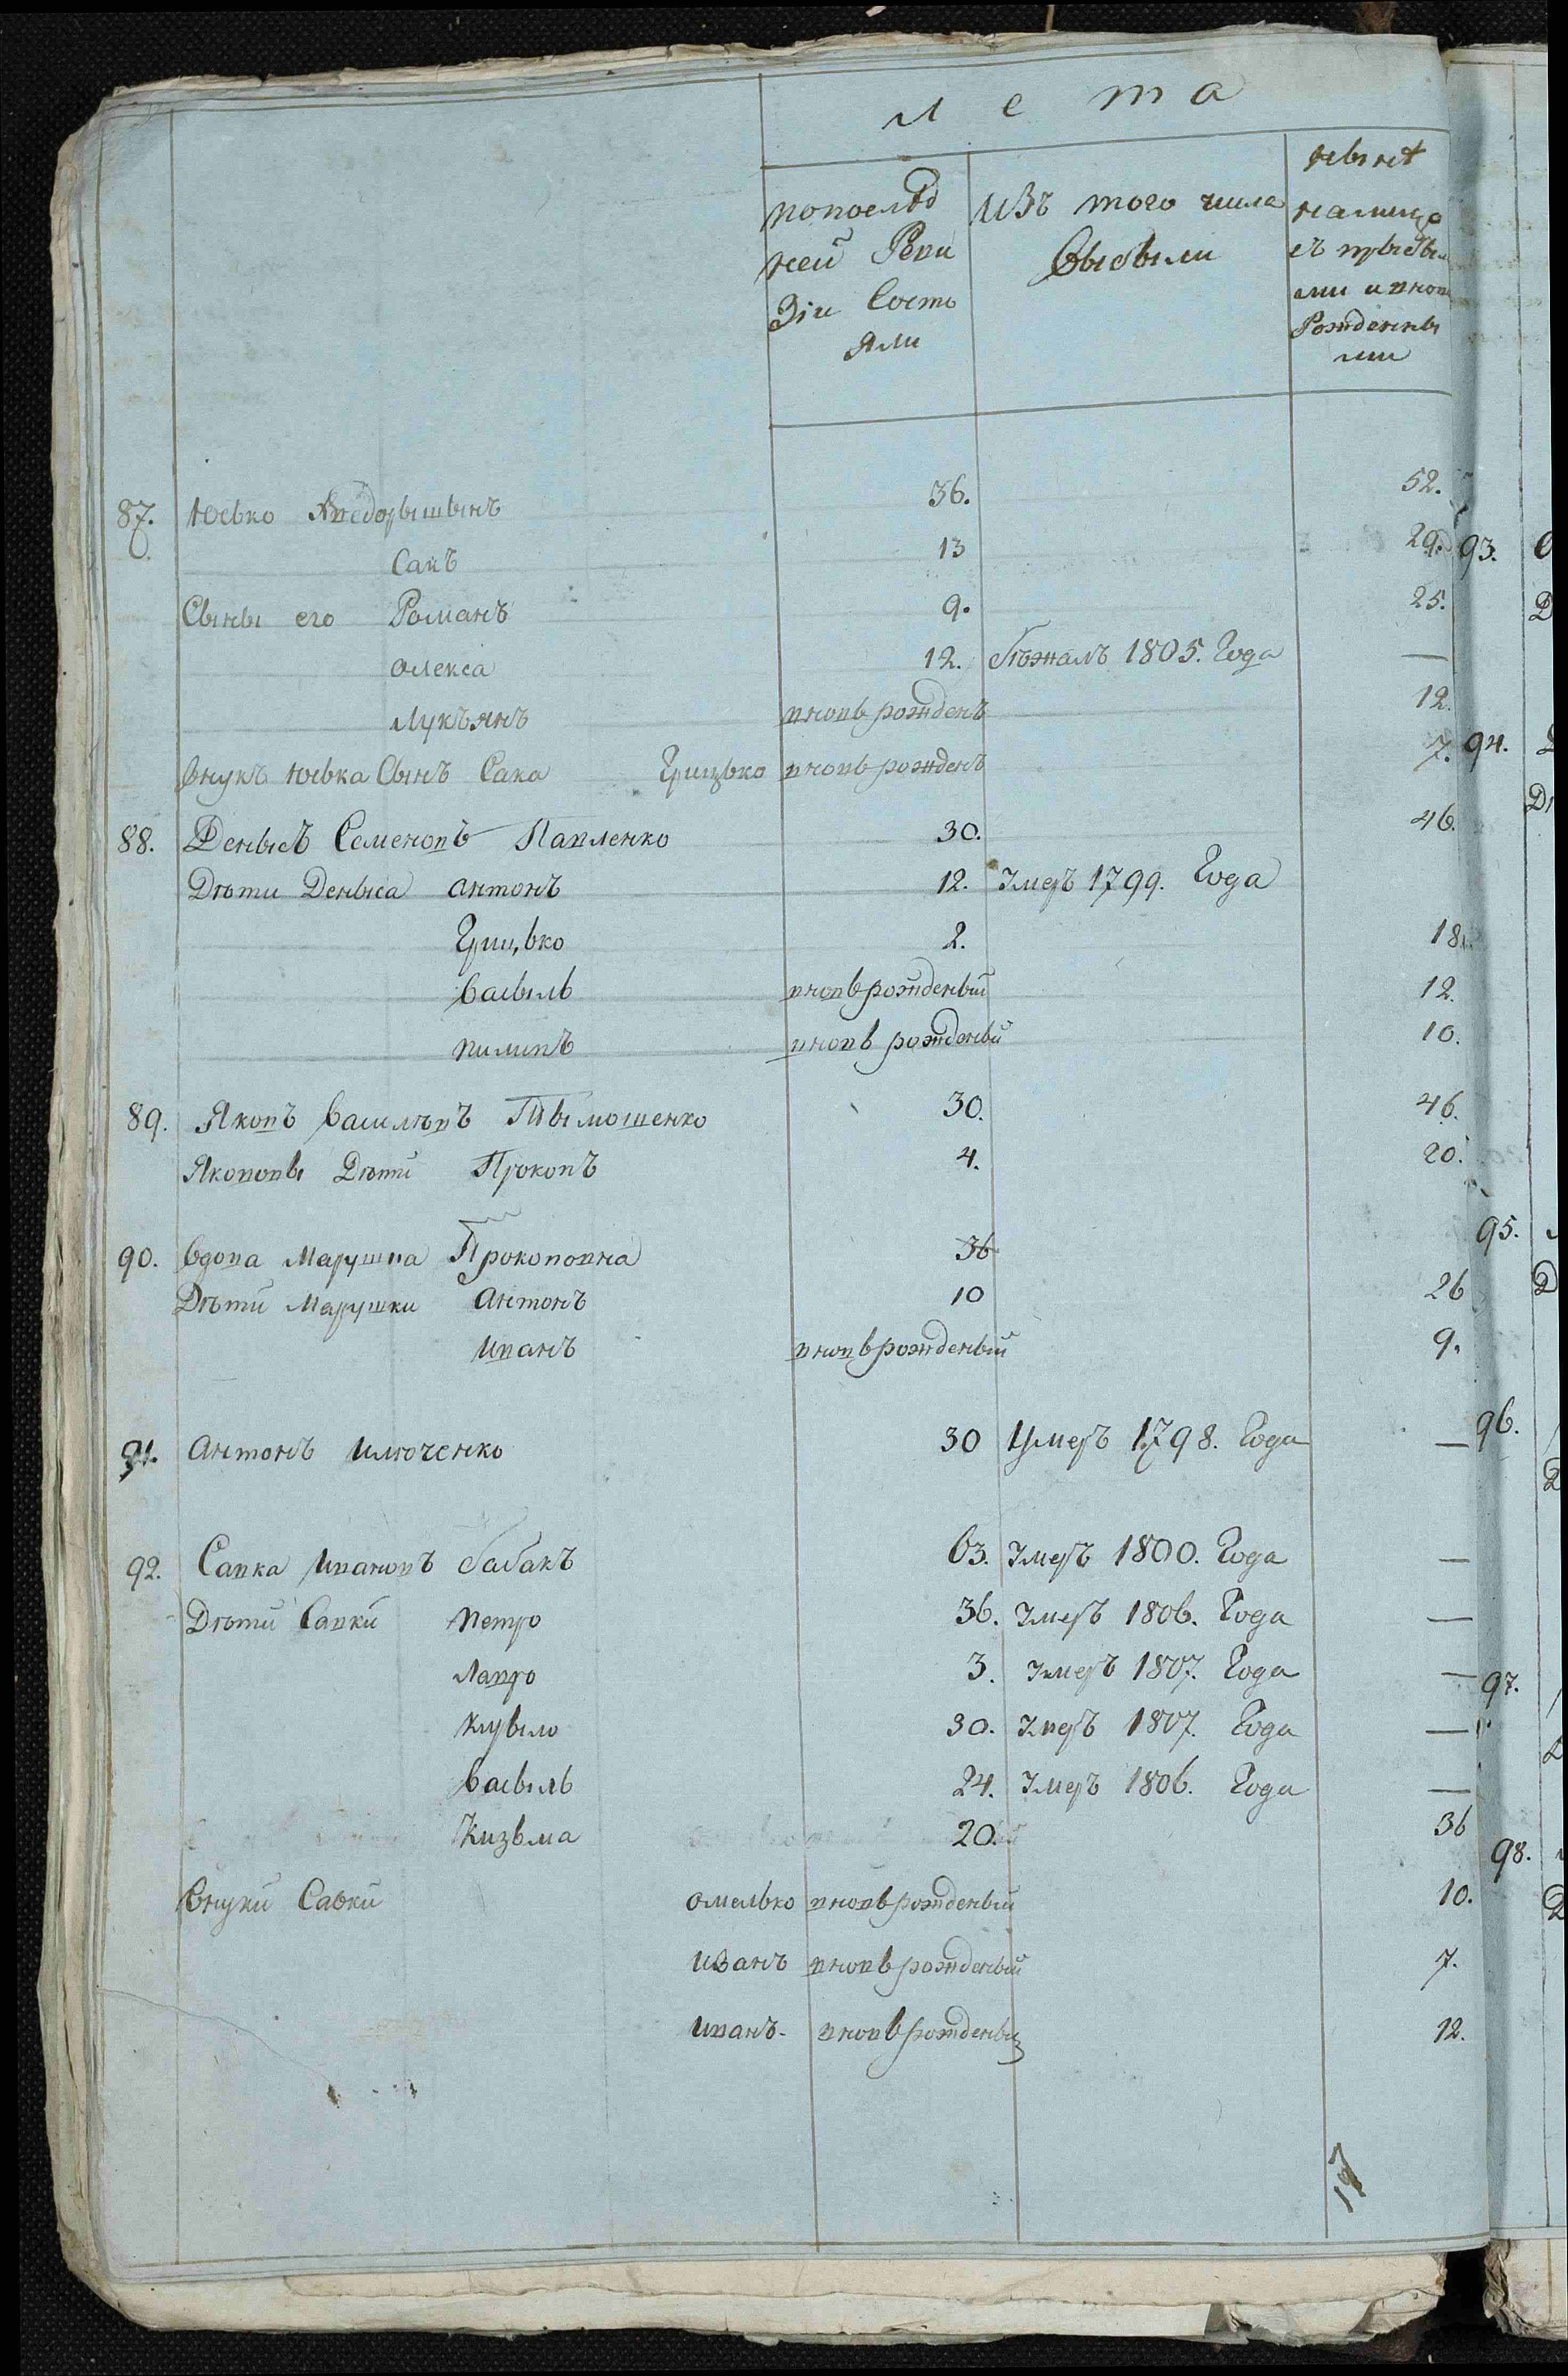 лета
попослѣд
ней Реви
зіи Состо
яли
изъ того числа
Выбыли
нынѣ
налицо
съ прыбы
ми и вновь
Рожденны
ми
87. Юсько 36. 52.
Сакъ 13 29.
Сыны его Романъ 9. 25.
Олекса 12. бѣжалъ 1805. Года —
Лукъянъ вновь рожденъ 12.
Внукъ Юська Сынъ Сака Грицько вновь рожденъ 7.
88. Денысъ Семеновъ Павленко 30. 46.
Дѣти Деныса Антонъ 12. Умеръ 1799. Года
Грицько 2. 18.
Васыль вновьрожденый 12.
Пилипъ вновь рожденый 10.
89. Яковъ Василѣвъ Тымошенко 30. 46.
Яковови Дѣти Прокопъ 4. 20.
90. Вдова Марушка Прокоповна 36
Дѣти Марушки Антонъ 10 26
Иванъ вновьрожденый 9.
91. Антонъ Илюченко 30 Умеръ 1798. Года —
92. Савка Ивановъ бабакъ 63. Умеръ 1800. Года —
Дѣти Савки Петро 36. Умеръ 1806. Года —
Лавро 3. Умеръ 1807. Года —
Кирыло 30. Умеръ 1807. Года —
Васыль 24. Умеръ 1806. Года —
Кизьма 20. 36
Внуки Савки Омелько вновьрожденый 10.
Иванъ вновьрожденый 7.
Иванъ. вновьрожденый 12.
93.
94.
95.
96.
97.
98.